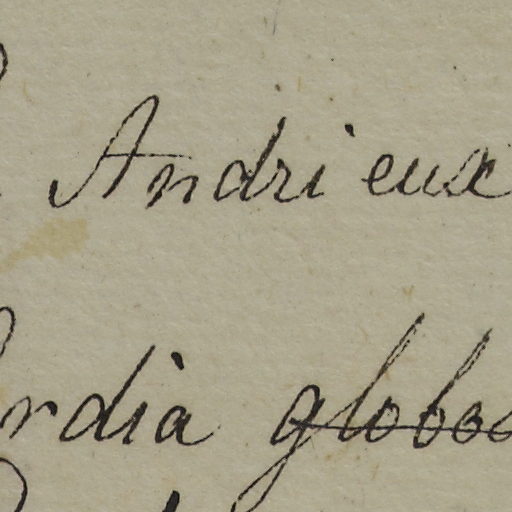 Andrieux
rdia globo